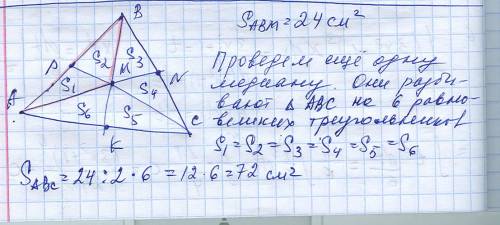 B
S_ABM = 24 см²
S₂ S₃
P M N
S₁ S₄
A S₆ S₅
K C
Проведем ещё одну
медиану. Они разби-
вают Δ ABC на 6 равно-
великих треугольников
S₁ = S₂ = S₃ = S₄ = S₅ = S₆
S_ABC = 24 : 2 · 6 = 12 · 6 = 72 см²